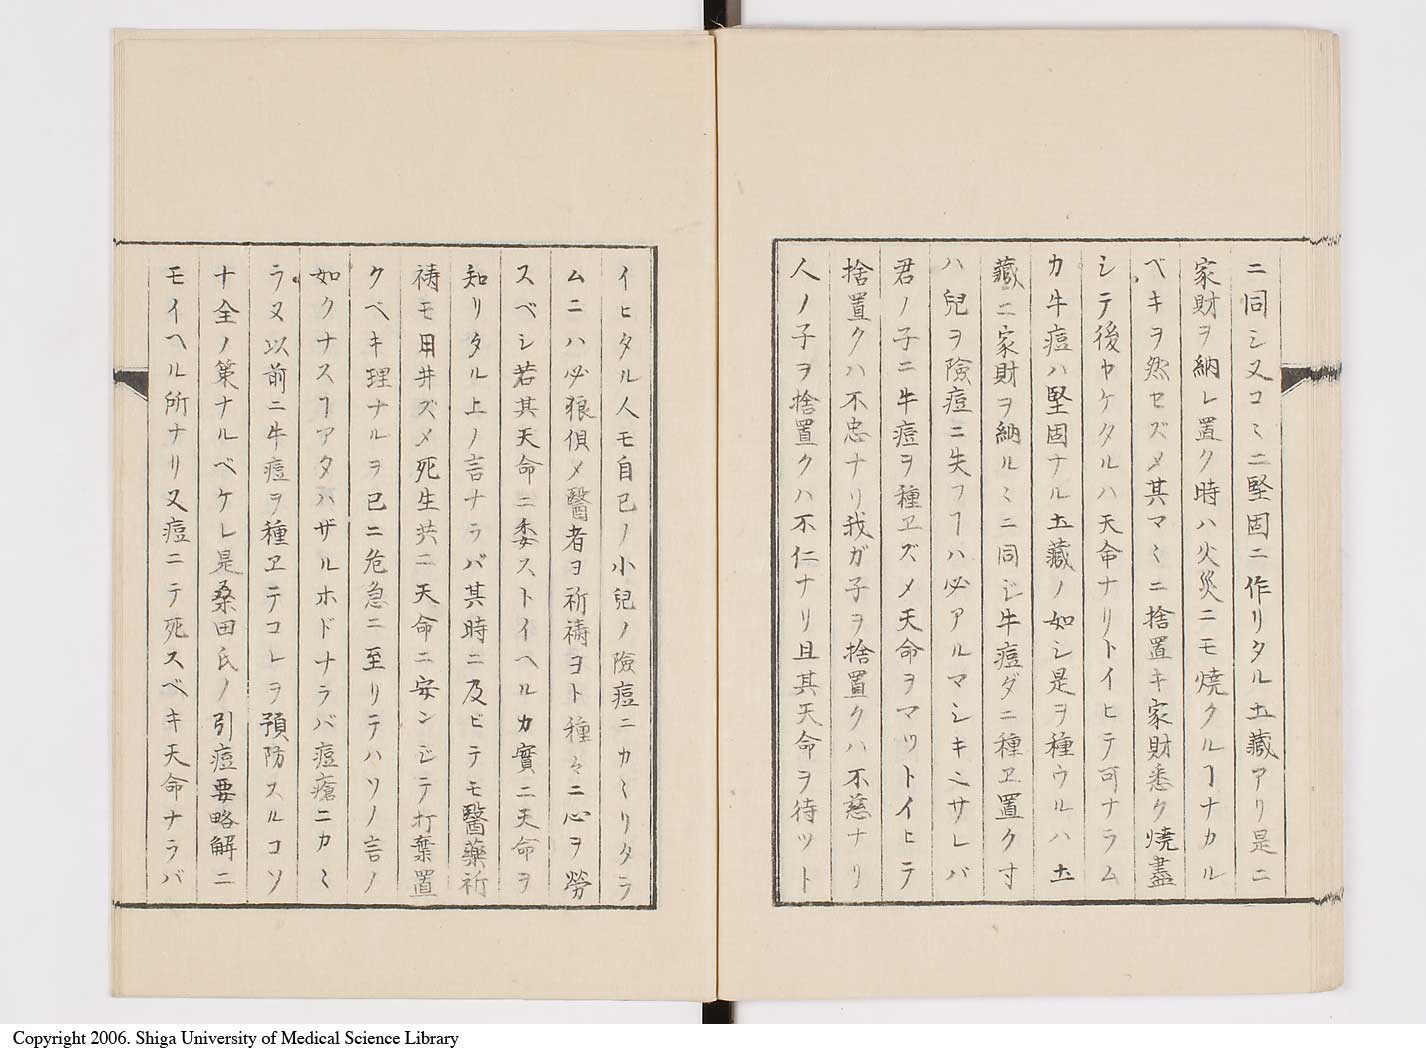 ニ同シ又コヽニ堅固ニ作リタル土藏アリ是ニ
家財ヲ納レ置ク時ハ火災ニモ焼クルヿナカル
ベキヲ然セズメ其マヽニ捨置キ家財悉ク燒盡
シテ後ヤケタルハ天命ナリトイヒテ可ナラム
カ牛痘ハ堅固ナル土藏ノ如シ是ヲ種ウルハ土
藏ニ家財ヲ納ルヽニ同ジ牛痘ダニ種ヱ置ク寸
ハ兒ヲ險痘ニ失フヿハ必アルマシキニサレバ
君ノ子ニ牛痘ヲ種ヱズメ天命ヲマツトイヒテ
捨置クハ不忠ナリ我ガ子ヲ捨置クハ不慈ナリ
人ノ子ヲ捨置クハ不仁ナリ且其天命ヲ待ツト
イヒタル人モ自己ノ小兒ノ險痘ニカヽリタラ
ムニハ必狼狽メ醫者ヨ祈祷ヨト種々ニ心ヲ勞
スベシ若其天命ニ委ストイヘルカ實ニ天命ヲ
知リタル上ノ言ナラバ其時ニ及ビテモ醫藥祈
祷モ用井ズメ死生共ニ天命ニ安ンジテ打棄置
クベキ理ナルヲ已ニ危急ニ至リテハソノ言ノ
如クナスヿアタハザルホドナラバ痘瘡ニカヽ
ラヌ以前ニ牛痘ヲ種ヱテコレヲ預防スルコソ
十全ノ策ナルベケレ是桑田氏ノ引痘要略解ニ
モイヘル所ナリ又痘ニテ死スベキ天命ナラバ
Copyright 2006. Shiga University of Medical Science Library